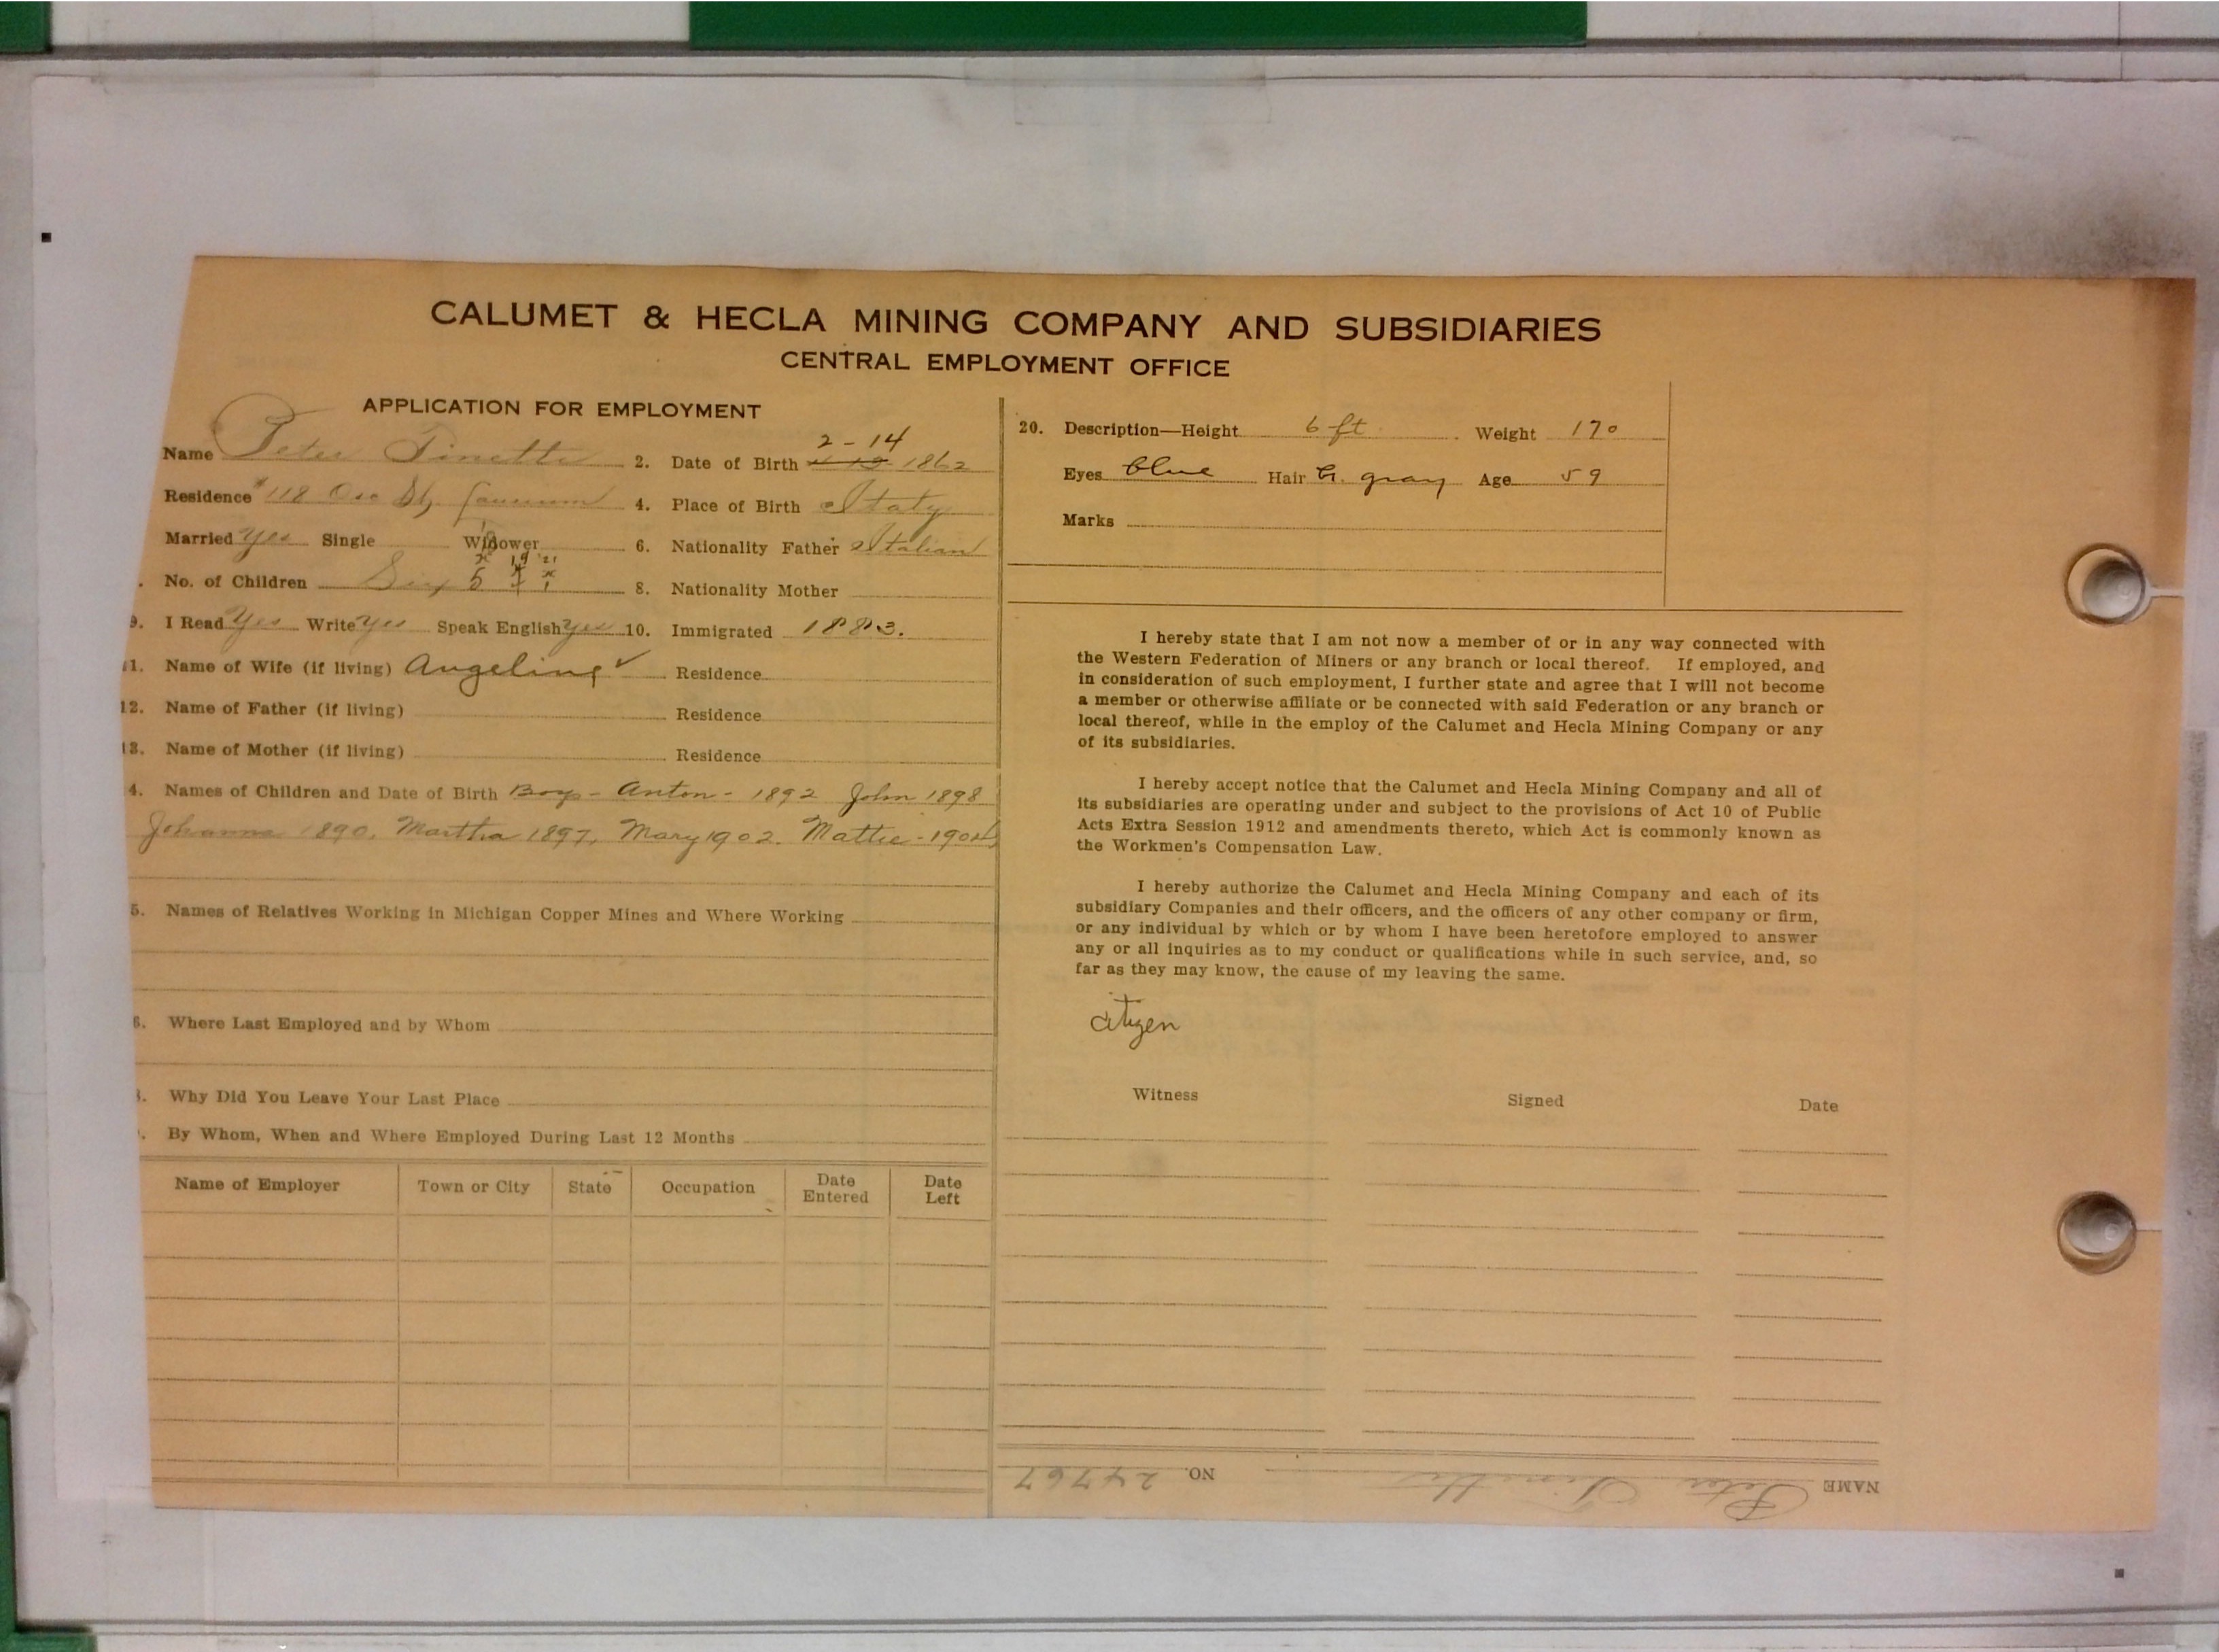 CALUMET & HECLA MINING COMPANY AND SUBSIDIARIES
CENTRAL EMPLOYMENT OFFICE
APPLICATION FOR EMPLOYMENT
Name Peter
2. Date of Birth 2-14 1862
Residence #118 Osc St.
4. Place of Birth Italy
Married Yes Single Widower
6. Nationality Father Italian
No. of Children Six 5
8. Nationality Mother
9. I Read Yes Write Yes Speak English Yes 10. Immigrated 1883.
11. Name of Wife (if living) Angeline ✓ Residence
12. Name of Father (if living) Residence
13. Name of Mother (if living) Residence
4. Names of Children and Date of Birth Boys - Anton - 1892 John 1898
Johanna 1890. Martha 1897, Mary 1902. Mattie - 1904
5. Names of Relatives Working in Michigan Copper Mines and Where Working
6. Where Last Employed and by Whom
Why Did You Leave Your Last Place
By Whom, When and Where Employed During Last 12 Months
Name of Employer Town or City State Occupation Date Entered Date Left
20. Description—Height 6 ft. Weight 170
Eyes blue Hair gray Age 59
Marks
I hereby state that I am not now a member of or in any way connected with
the Western Federation of Miners or any branch or local thereof. If employed, and
in consideration of such employment, I further state and agree that I will not become
a member or otherwise affiliate or be connected with said Federation or any branch or
local thereof, while in the employ of the Calumet and Hecla Mining Company or any
of its subsidiaries.
I hereby accept notice that the Calumet and Hecla Mining Company and all of
its subsidiaries are operating under and subject to the provisions of Act 10 of Public
Acts Extra Session 1912 and amendments thereto, which Act is commonly known as
the Workmen's Compensation Law.
I hereby authorize the Calumet and Hecla Mining Company and each of its
subsidiary Companies and their officers, and the officers of any other company or firm,
or any individual by which or by whom I have been heretofore employed to answer
any or all inquiries as to my conduct or qualifications while in such service, and, so
far as they may know, the cause of my leaving the same.
citizen
Witness Signed Date
NAME Peter NO. 24767